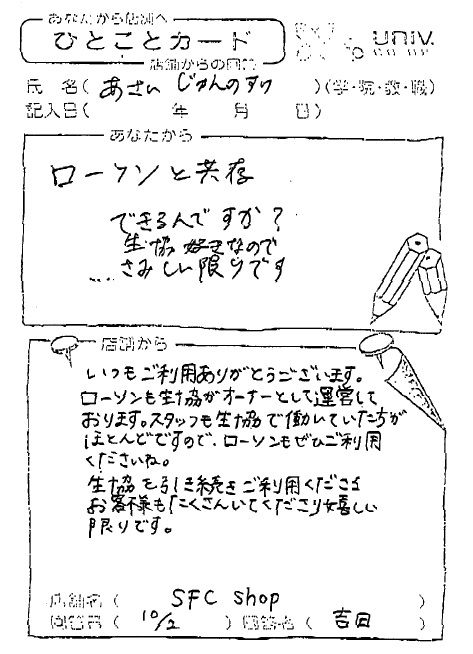 あなたから店舗へ
ひとことカード
店舗からの回答
univ.
co-op
氏 名( あさい じゅんのすけ )(学・院・教・職)
記入日( 年 月 日)
あなたから
ローソンと共存
できるんですか?
生協好きなので
...さみしい限りです
店舗から
いつもご利用ありがとうございます。
ローソンも生協がオーナーとして運営して
おります。スタッフも生協で働いていた方が
ほとんどですので、ローソンもぜひご利用
くださいね。
生協を引き続きご利用くださる
お客様もたくさんいてくださり嬉しい
限りです。
店舗名( SFC shop )
回答日( 10/2 ) 回答者( 吉田 )